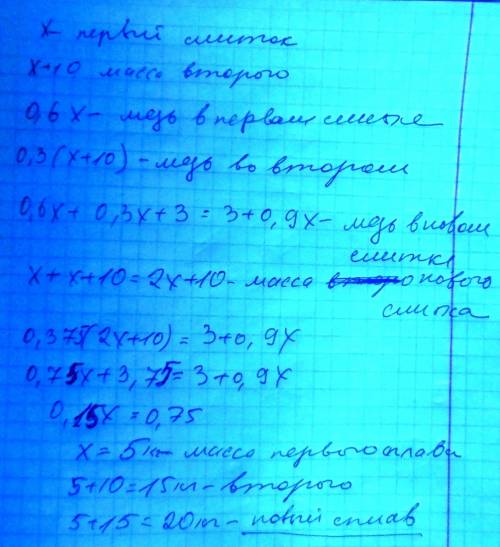 x - первый слиток
x+10 масса второго
0,6x - медь в первом слитке
0,3(x+10) - медь во втором
0,6x + 0,3x + 3 = 3+0,9x - медь в новом
слитке
x + x+10 = 2x+10 - масса нового
слитка
0,375(2x+10) = 3+0,9x
0,75x+3,75 = 3+0,9x
0,15x = 0,75
x = 5кг - масса первого сплава
5+10=15кг - второго
5+15=20кг - новый сплав